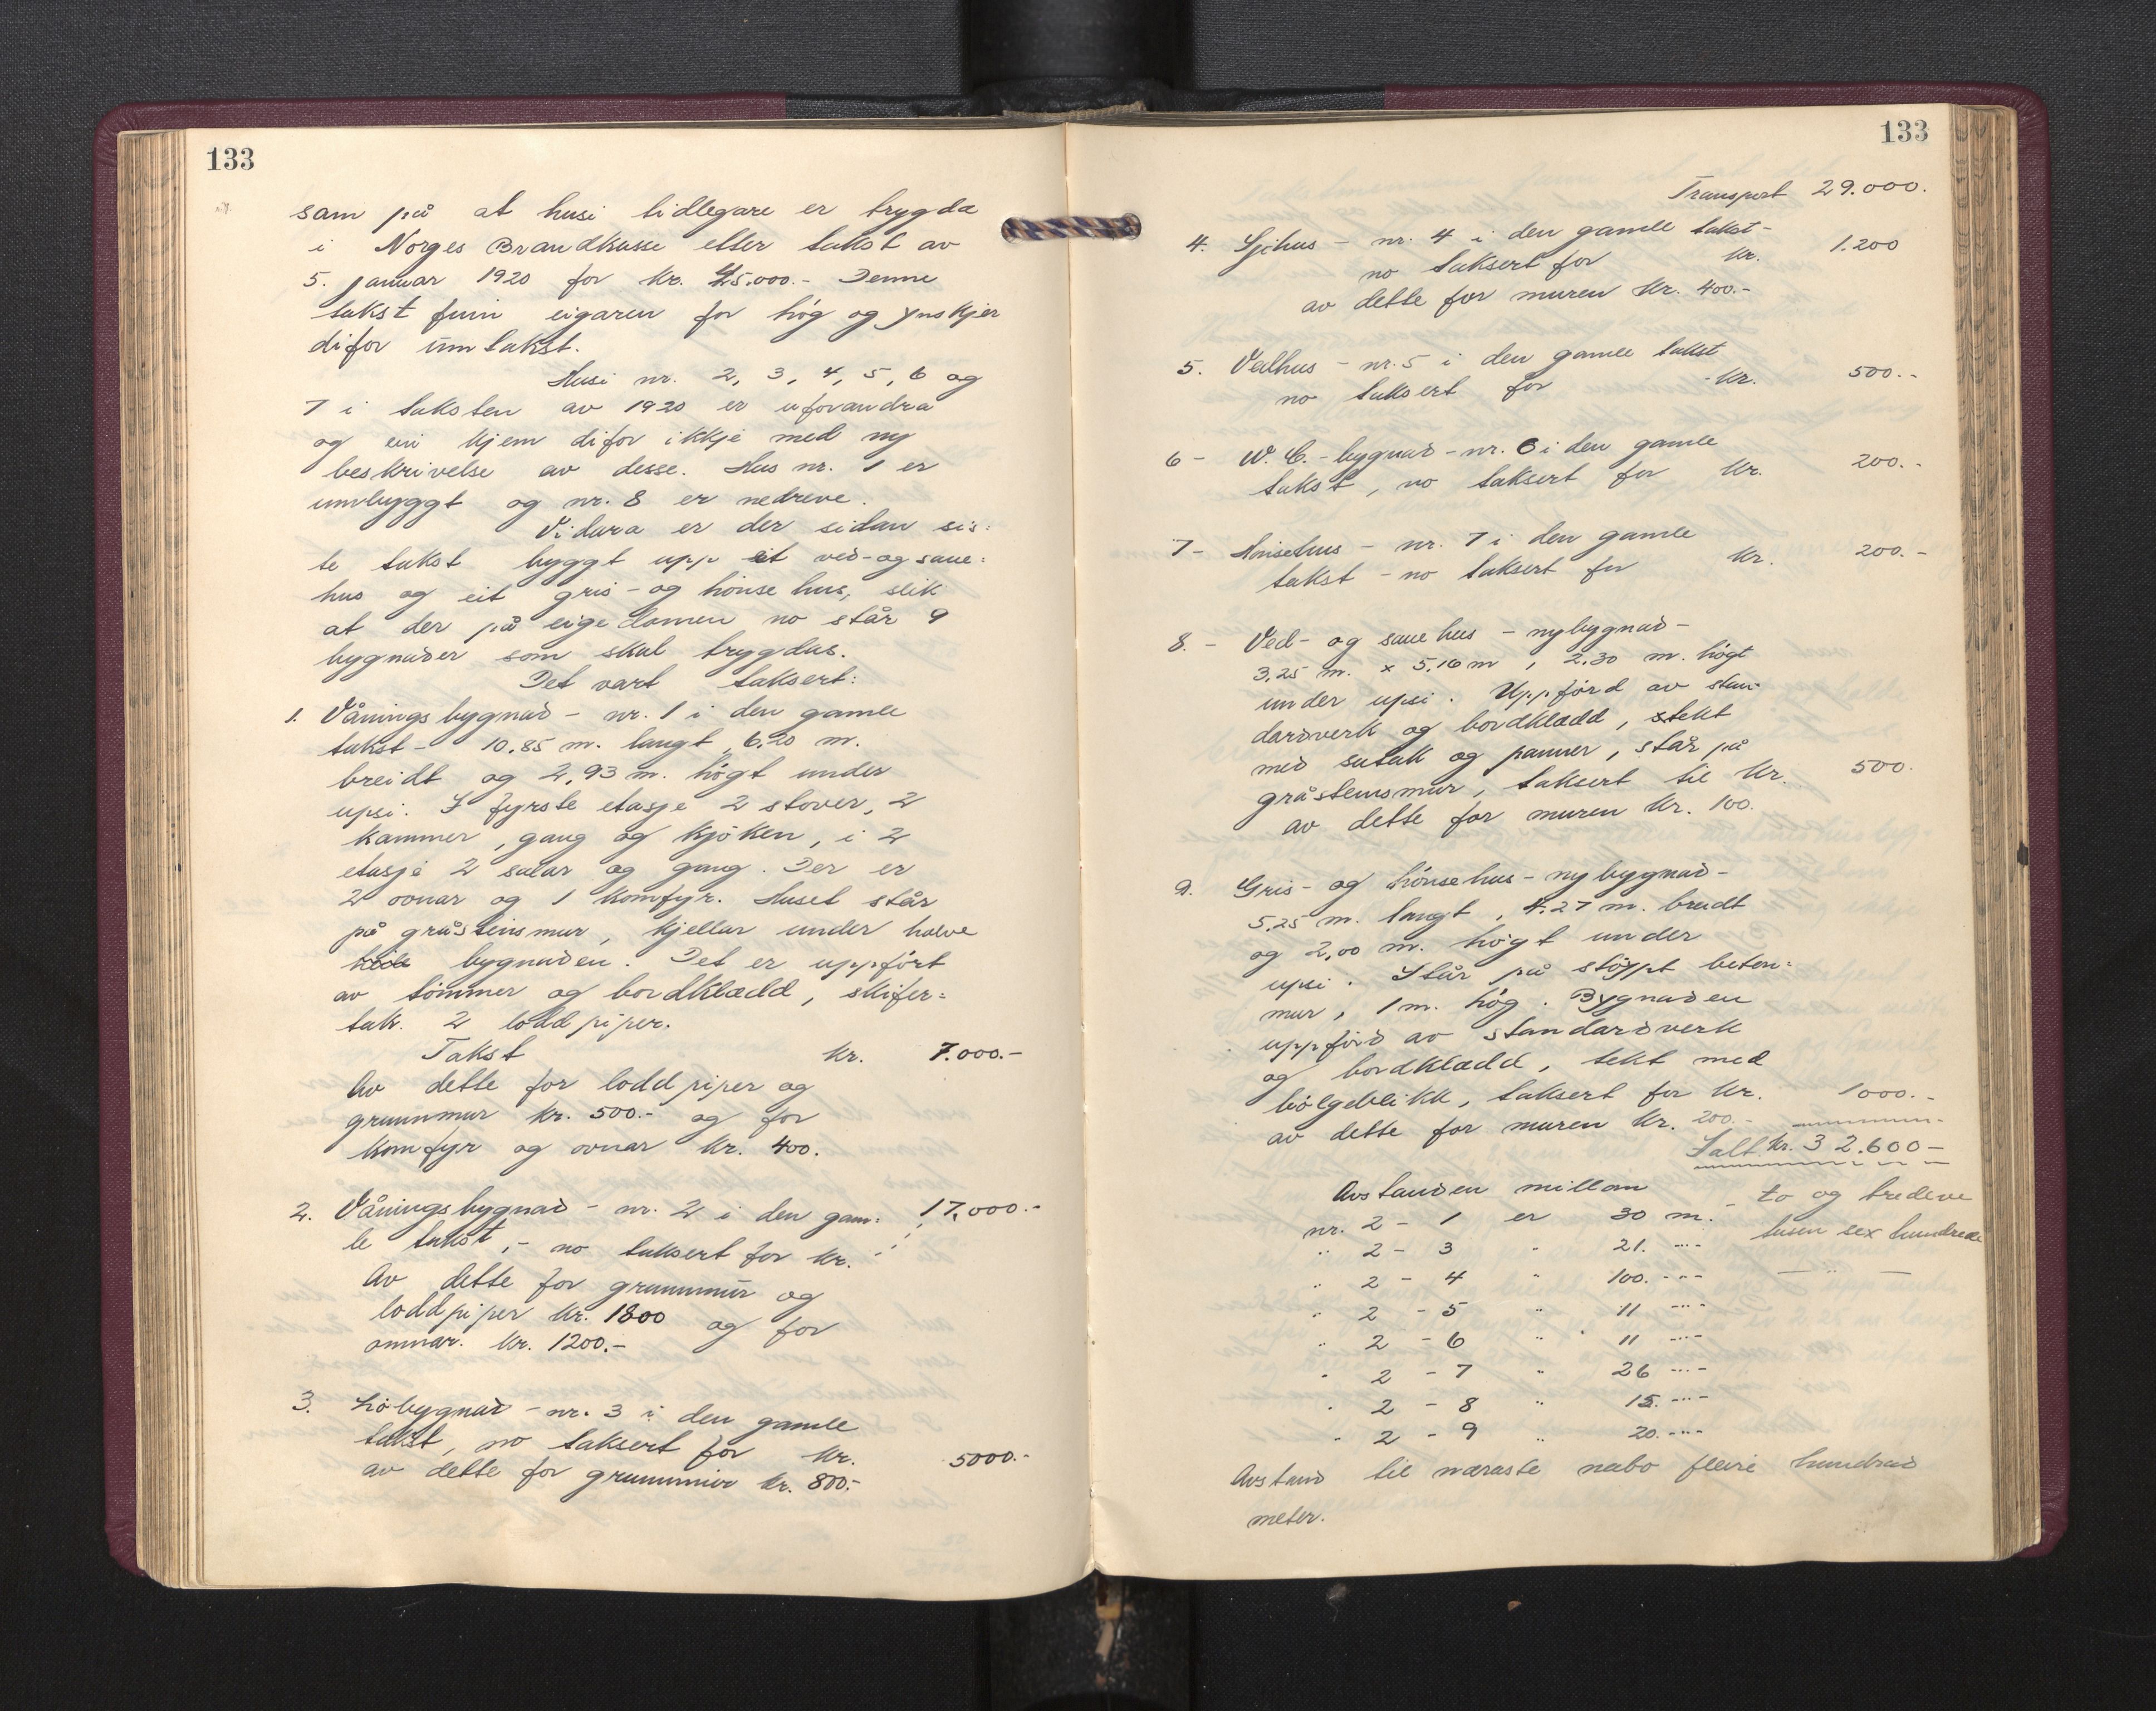 133
sam på at husi tidlegare er trygda
i Norges Brandkasse etter takst av
5. januar 1920 for kr. 45.000.- Denne
takst finn eigaren for høg og ynskjer
difor umtakst.
Husi nr. 2, 3, 4, 5, 6 og
7 i taksten av 1920 er uforandra
og ein kjem difor ikkje med ny
beskrivelse av desse. Hus nr. 1 er
umbyggt og nr. 8 er nedreve.
Vidara er der sidan sis=
te takst byggt upp eit ved- og saue=
hus og eit gris- og hönsehus, slik
at der på eigedomen no står 9
bygnader som skal trygdas.
Det vart taksert:
1. Våningsbygnad - nr. 1 i den gamle
takst - 10,85 m. langt, 6,20 m.
breidt og 2,93 m. högt under
upsi. I fyrste etasje 2 stover, 2
kammer, gang og kjöken, i 2
etasje 2 salar og gang. Der er
2 ovnar og 1 komfyr. Huset står
på gråsteinsmur, kjellar under halve
bygnaden. Det er uppfört
av tömmer og bordklædd, skifer=
tak. 2 loddpiper.
Takst kr. 7.000.-
Av dette for loddpiper og
grunnmur kr. 500.- og for
komfyr og ovnar kr. 400.
2. Våningsbygnad - nr. 2 i den gam= 17.000.-
le takst, - no taksert for kr.
Av dette for grunnmur og
loddpiper kr. 1800 og for
omnar. kr. 1200.-
3. Löbygnad - nr. 3 i den gamle
takst, no taksert for kr. 5000.-
av dette for grunnmur kr. 800.-
133
Transport 29.000.
4. Sjöhus - nr. 4 i den gamle takst -
no taksert for kr. 1.200
av dette for muren kr. 400.-
5. Vedhus - nr. 5 i den gamle takst
no taksert for kr. 500.-
6 - W.C. - bygnad - nr. 6 i den gamle
takst, no taksert for kr. 200.-
7 - Hönsehus - nr. 7 i den gamle
takst - no taksert for kr. 200.-
8. - Ved- og sauehus - nybygnad -
3,25 m. x 5,16 m, 2,30 m. högt
under upsi. Uppförd av stan-
dardverk og bordklædd, tekt
med sutak og panner, står på
gråsteinsmur, taksert til kr. 500.
av dette for muren kr. 100.
9. Gris- og hönsehus - nybygnad -
5,25 m. langt, 4,27 m. breidt
og 2,00 m. högt under
upsi. Står på stöypt beton=
mur, 1 m. hög. Bygnaden
uppförd av standardverk
og bordklædd, tekt med
bölgeblikk, taksert for kr. 1000.-
av dette for muren kr. 200.-
I alt kr. 32.600 -
Avstanden millom - to og tredeve
nr. 2 - 1 er 30 m. tusen sex hundrede
" 2 - 3 " 21. -"-
" 2 - 4 " 100. -"- — " —
" 2 - 5 " 11 -"-
" 2 - 6 " 11 -"-
" 2 - 7 " 26 -"-
" 2 - 8 " 15. -"-
" 2 - 9 " 20. -"-
Avstand til næraste nabo fleire hundrad
meter.